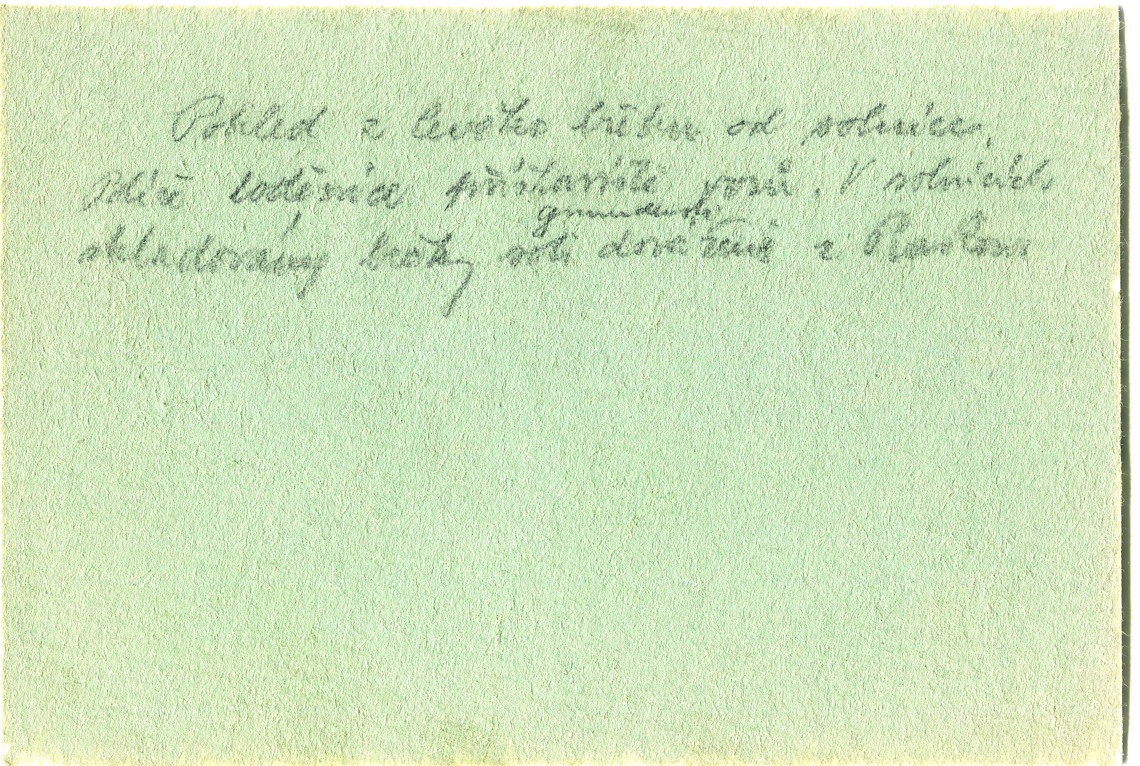 Pohled z levého břehu od solnice.
Níže loděnice přístaviště vorů. V solnicích
gmundenské
skladovány bečky soli dovážené z Rakous